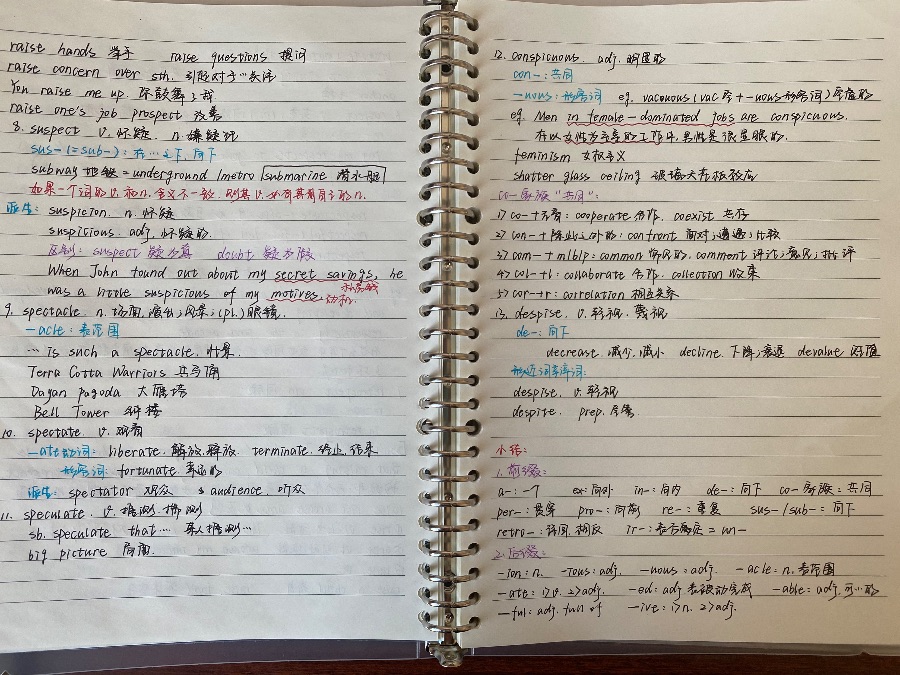 raise hands 举手 raise questions 提问
raise concern over sth. 引起对于…关注
You raise me up. 你鼓舞了我
raise one's job prospect 改善
8. suspect v. 怀疑. n. 嫌疑犯
sus-(=sub-): 在…之下,向下
subway 地铁 = underground/metro submarine 潜水艇
如果一个词的v.和n.含义不一致,则其v.必有其有自己的n.
派生: suspicion. n. 怀疑
suspicious. adj. 怀疑的.
区别: suspect 疑为真 doubt 疑为假
When John found out about my secret savings, he
私房钱
was a little suspicious of my motives.
动机.
9. spectacle n. 场面,演出;风景;(pl.)眼镜.
-acle: 表范围
… is such a spectacle. 壮景.
Terra Cotta Warriors 兵马俑
Dayan pagoda 大雁塔
Bell Tower 钟楼
10. spectate v. 观看
-ate动词: liberate. 解放,释放. terminate. 终止,结束
形容词: fortunate. 幸运的
派生: spectator 观众 audience. 听众
11. speculate. v. 推测,猜测
sb. speculate that… 某人推测…
big picture 局面.
12. conspicuous. adj. 明显的
con-: 共同
-uous: 形容词 eg. vacuous (vac空+-uous形容词) 空虚的
eg. Men in female-dominated jobs are conspicuous.
在以女性为主导的工作中,男性是很显眼的.
feminism 女权主义
shatter glass ceiling 玻璃天花板效应
co-家族"共同":
1) co-+元音: cooperate 合作. coexist 共存
2) con-+除此之外的: confront 面对;遭遇;比较
3) com-+m/b/p: common 常见的. comment 评论;意见;批评
4) col-+l: collaborate 合作. collection 收集
5) cor-+r: correlation 相互关系
13. despise. v. 轻视. 蔑视
de-: 向下
decrease. 减少,减小 decline. 下降;衰退 devalue 贬值
形近词辛辛词:
despise. v. 轻视
despite. prep. 尽管.
小结:
1. 前缀:
a-: 一个 ex: 向外 in-: 向内 de-: 向下 co-家族: 共同
per-: 贯穿 pro-: 向前 re-: 重复 sus-/sub-: 向下
retro-: 往回,相反 ir-: 表否定 = un-
2. 后缀:
-ion: n. -ious: adj. -uous: adj. -acle: n. 表范围
-ate: 1)v. 2)adj. -ed: adj 表被动完成 -able: adj. 可…的
-ful: adj. full of -ive: 1)n. 2)adj.